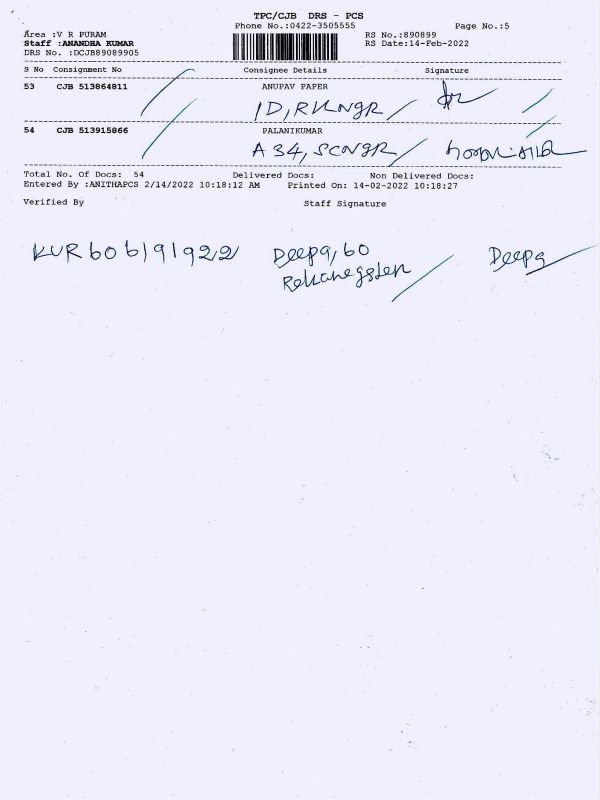 TPC/CJB DRS - PCS
Phone No.:0422-3505555 Page No.:5
Area :V R PURAM RS No.:890899
Staff :ANANDHA KUMAR RS Date:14-Feb-2022
DRS No. :DCJB89089905
S No Consignment No Consignee Details Signature
53 CJB 513864811 ANUPAV PAPER
1D, RKNGR
54 CJB 513915866 PALANIKUMAR
A 34, SCNGR
Total No. Of Docs: 54 Delivered Docs: Non Delivered Docs:
Entered By :ANITHAPCS 2/14/2022 10:18:12 AM Printed On: 14-02-2022 10:18:27
Verified By Staff Signature
KUR606191922 Deepa, 60 Deepa